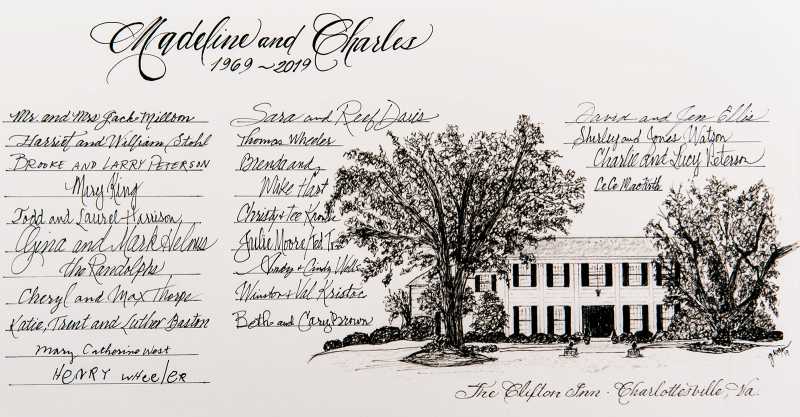 Madeline and Charles
1969 ~ 2019
Mr. and Mrs Jack Millson
Harriet and William Stohl
BROOKE AND LARRY PETERSON
Mary King
Todd and Laurel Harrison
Gina and Mark Helms
the Randolphs
Cheryl and Max Thorpe
Katie, Trent and Luther Baston
Mary Catherine West
HENRY WHEELER
Sara and Reef Davis
Thomas Wheeler
Brenda and
Wake Hart
Christy + Tee
Julie Moore/Ted
Andy + Candy Wolle
Winston + Val Kristoe
Beth and Cary Brown
David and Jen Ellis
Shirley and Jones Watson
Charlie and Lucy Peterson
CeCe MacBeth
The Clifton Inn - Charlottesville, Va.